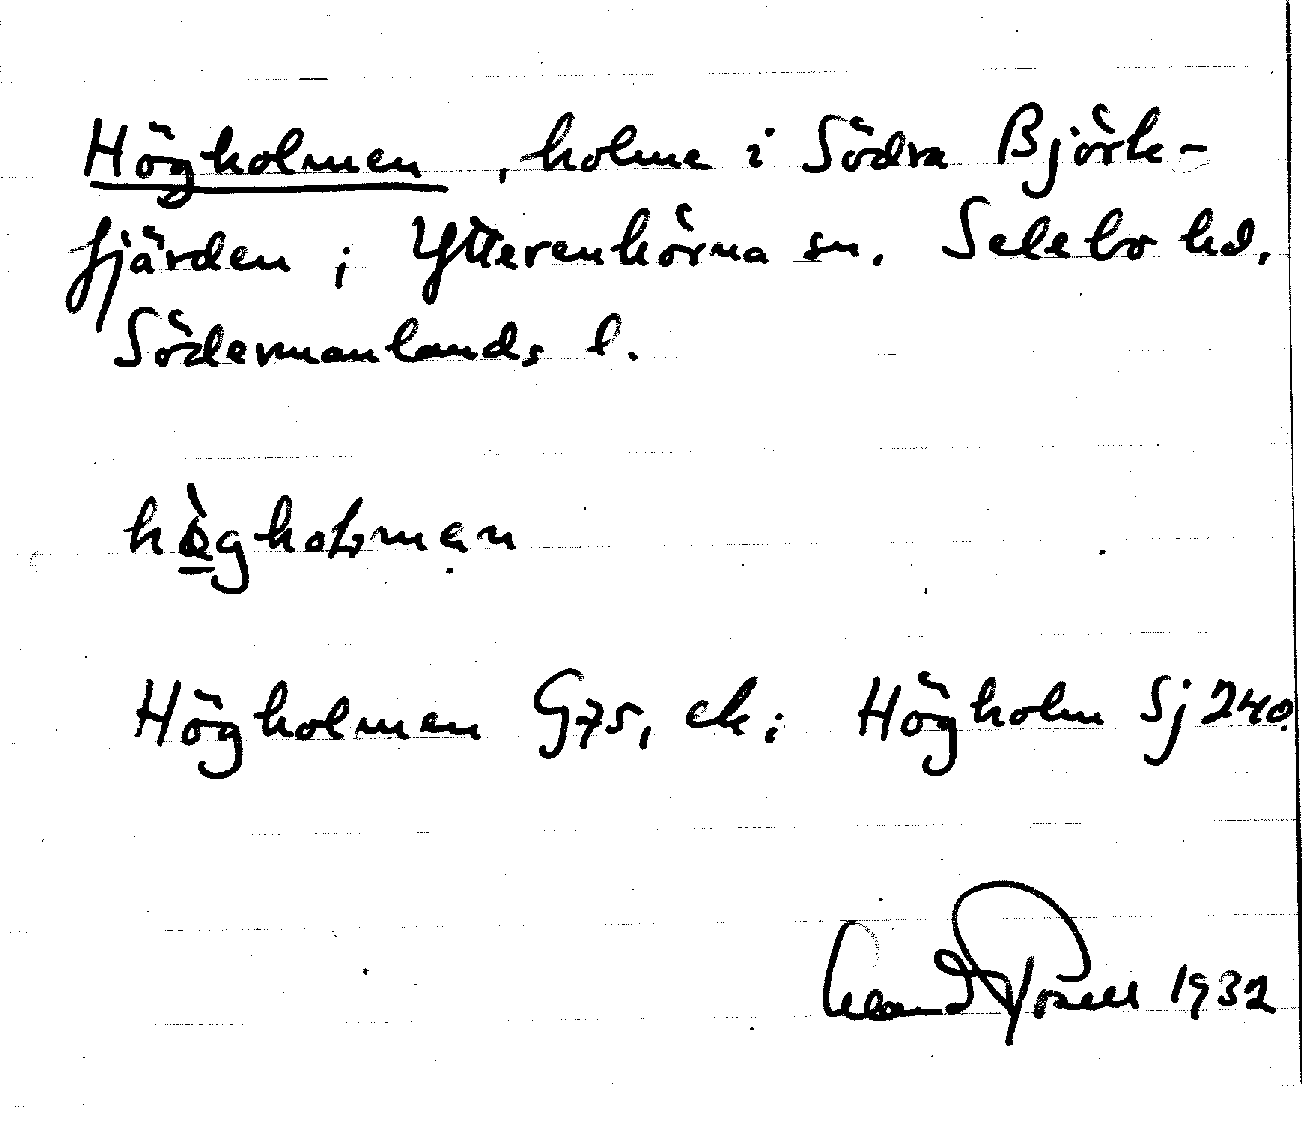 Högholmen, holme i Södra Björk-
fjärden i Ytterenhörna sn. Selebo hd.
Södermanlands l.
hògholman
Högholmen G75, ek; Högholm Sj 240.
1932